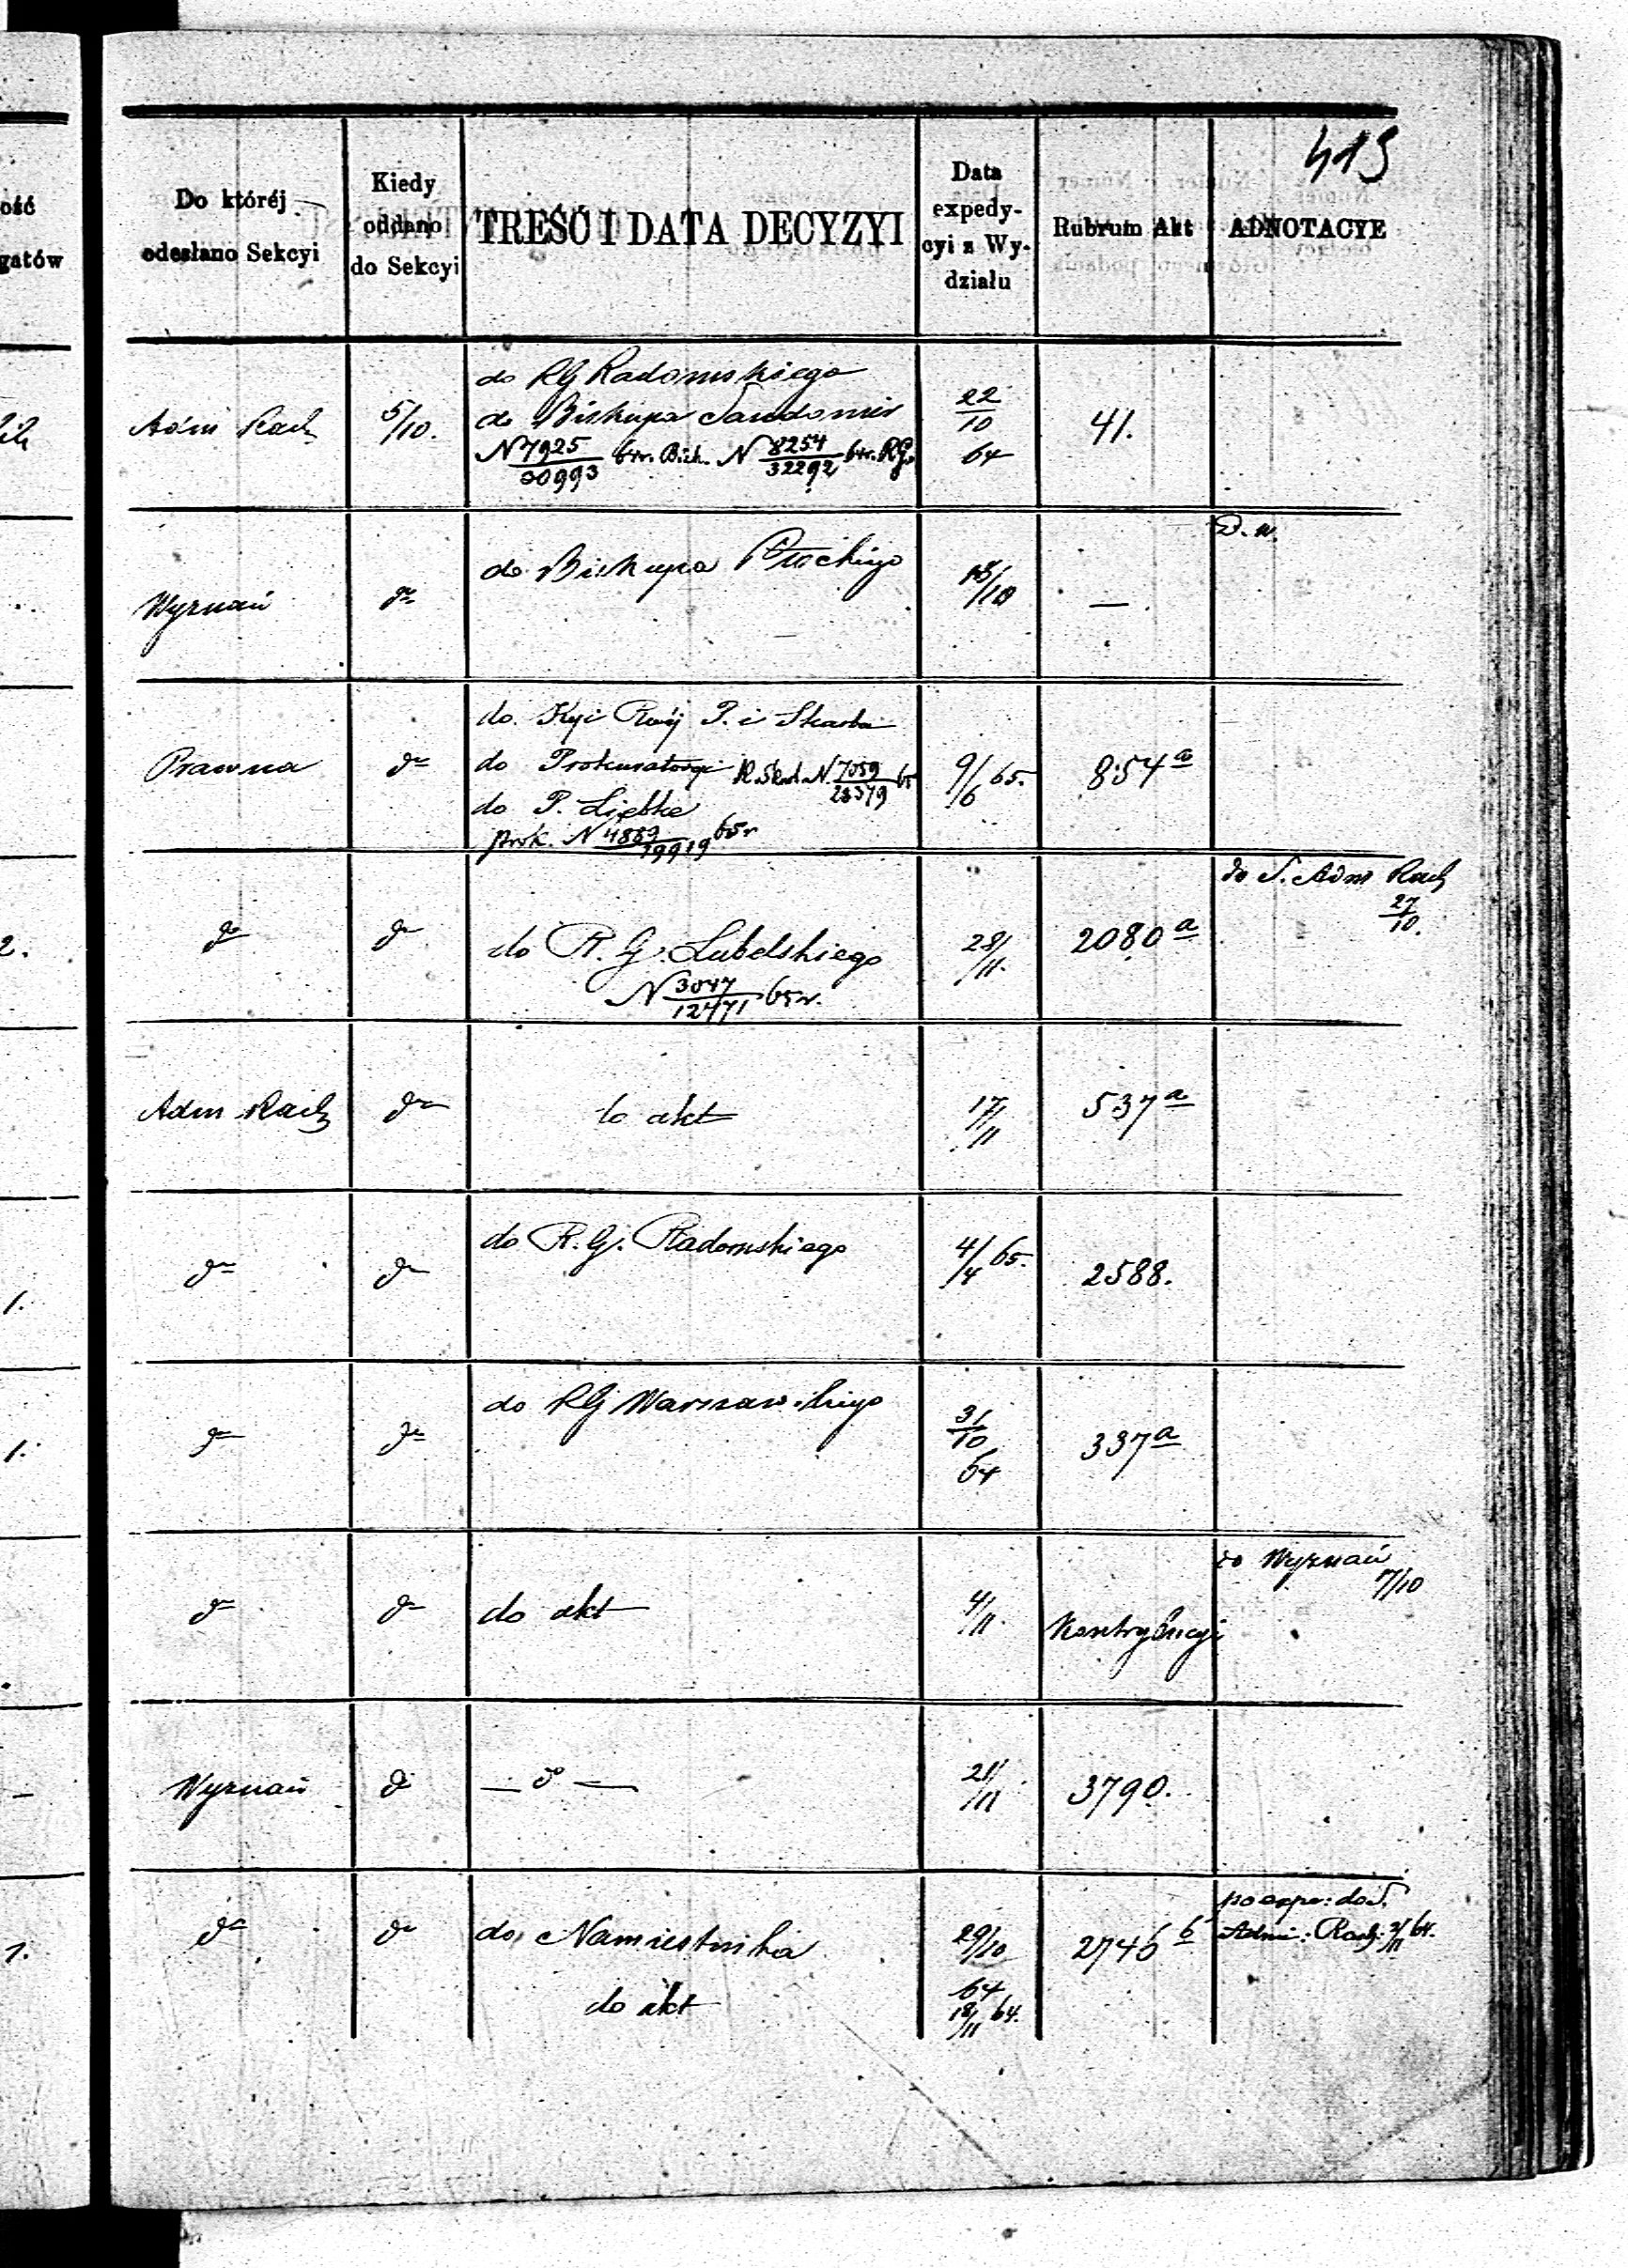 413
ość
gatów
Do któréj
odesłano Sekcyi
Kiedy
oddano
do Sekcyi
TREŚĆ I DATA DECYZYI
Data
expedy-
cyi z Wy-
działu
Rubrum Akt
ADNOTACYE
Adm Rach
5/10.
do RG Radomskiego
do Biskupa Sandomir
N 7925/30993 64r. Bisk. N 8254/32292 64r. RG.
22/10
64
41.
Wyznań
do
do Biskupa Płockiego
18/10
—
D. w.
Prawna
do
do Kyi Rząj P. i Skarbu
do Prokuratoryi R. Skarb. N 7059/28379 65
do P. Liebke
prok. N 4889/19919 65r
9/6 65.
854 a
2.
do
do
do R. G. Lubelskiego
N 3047/12471 65r.
28/11.
2080 a
do S. Adm Rach
27/10.
Adm Rach
do
do akt
17/11
537 a
1.
do
do
do R. G. Radomskiego
4/4 65.
2588.
1.
do
do
do RG Warszawskiego
31/10
64
337 a
do
do
do akt
4/11.
Kontrybucyi
do Wyznań
7/10
Wyznań
do
— do —
21/11
3790.
1.
do
do
do Namiestnika
do akt
29/10
64
18/11 64.
2746 b
po expe: do S.
Admi: Rach: 2/11 64.